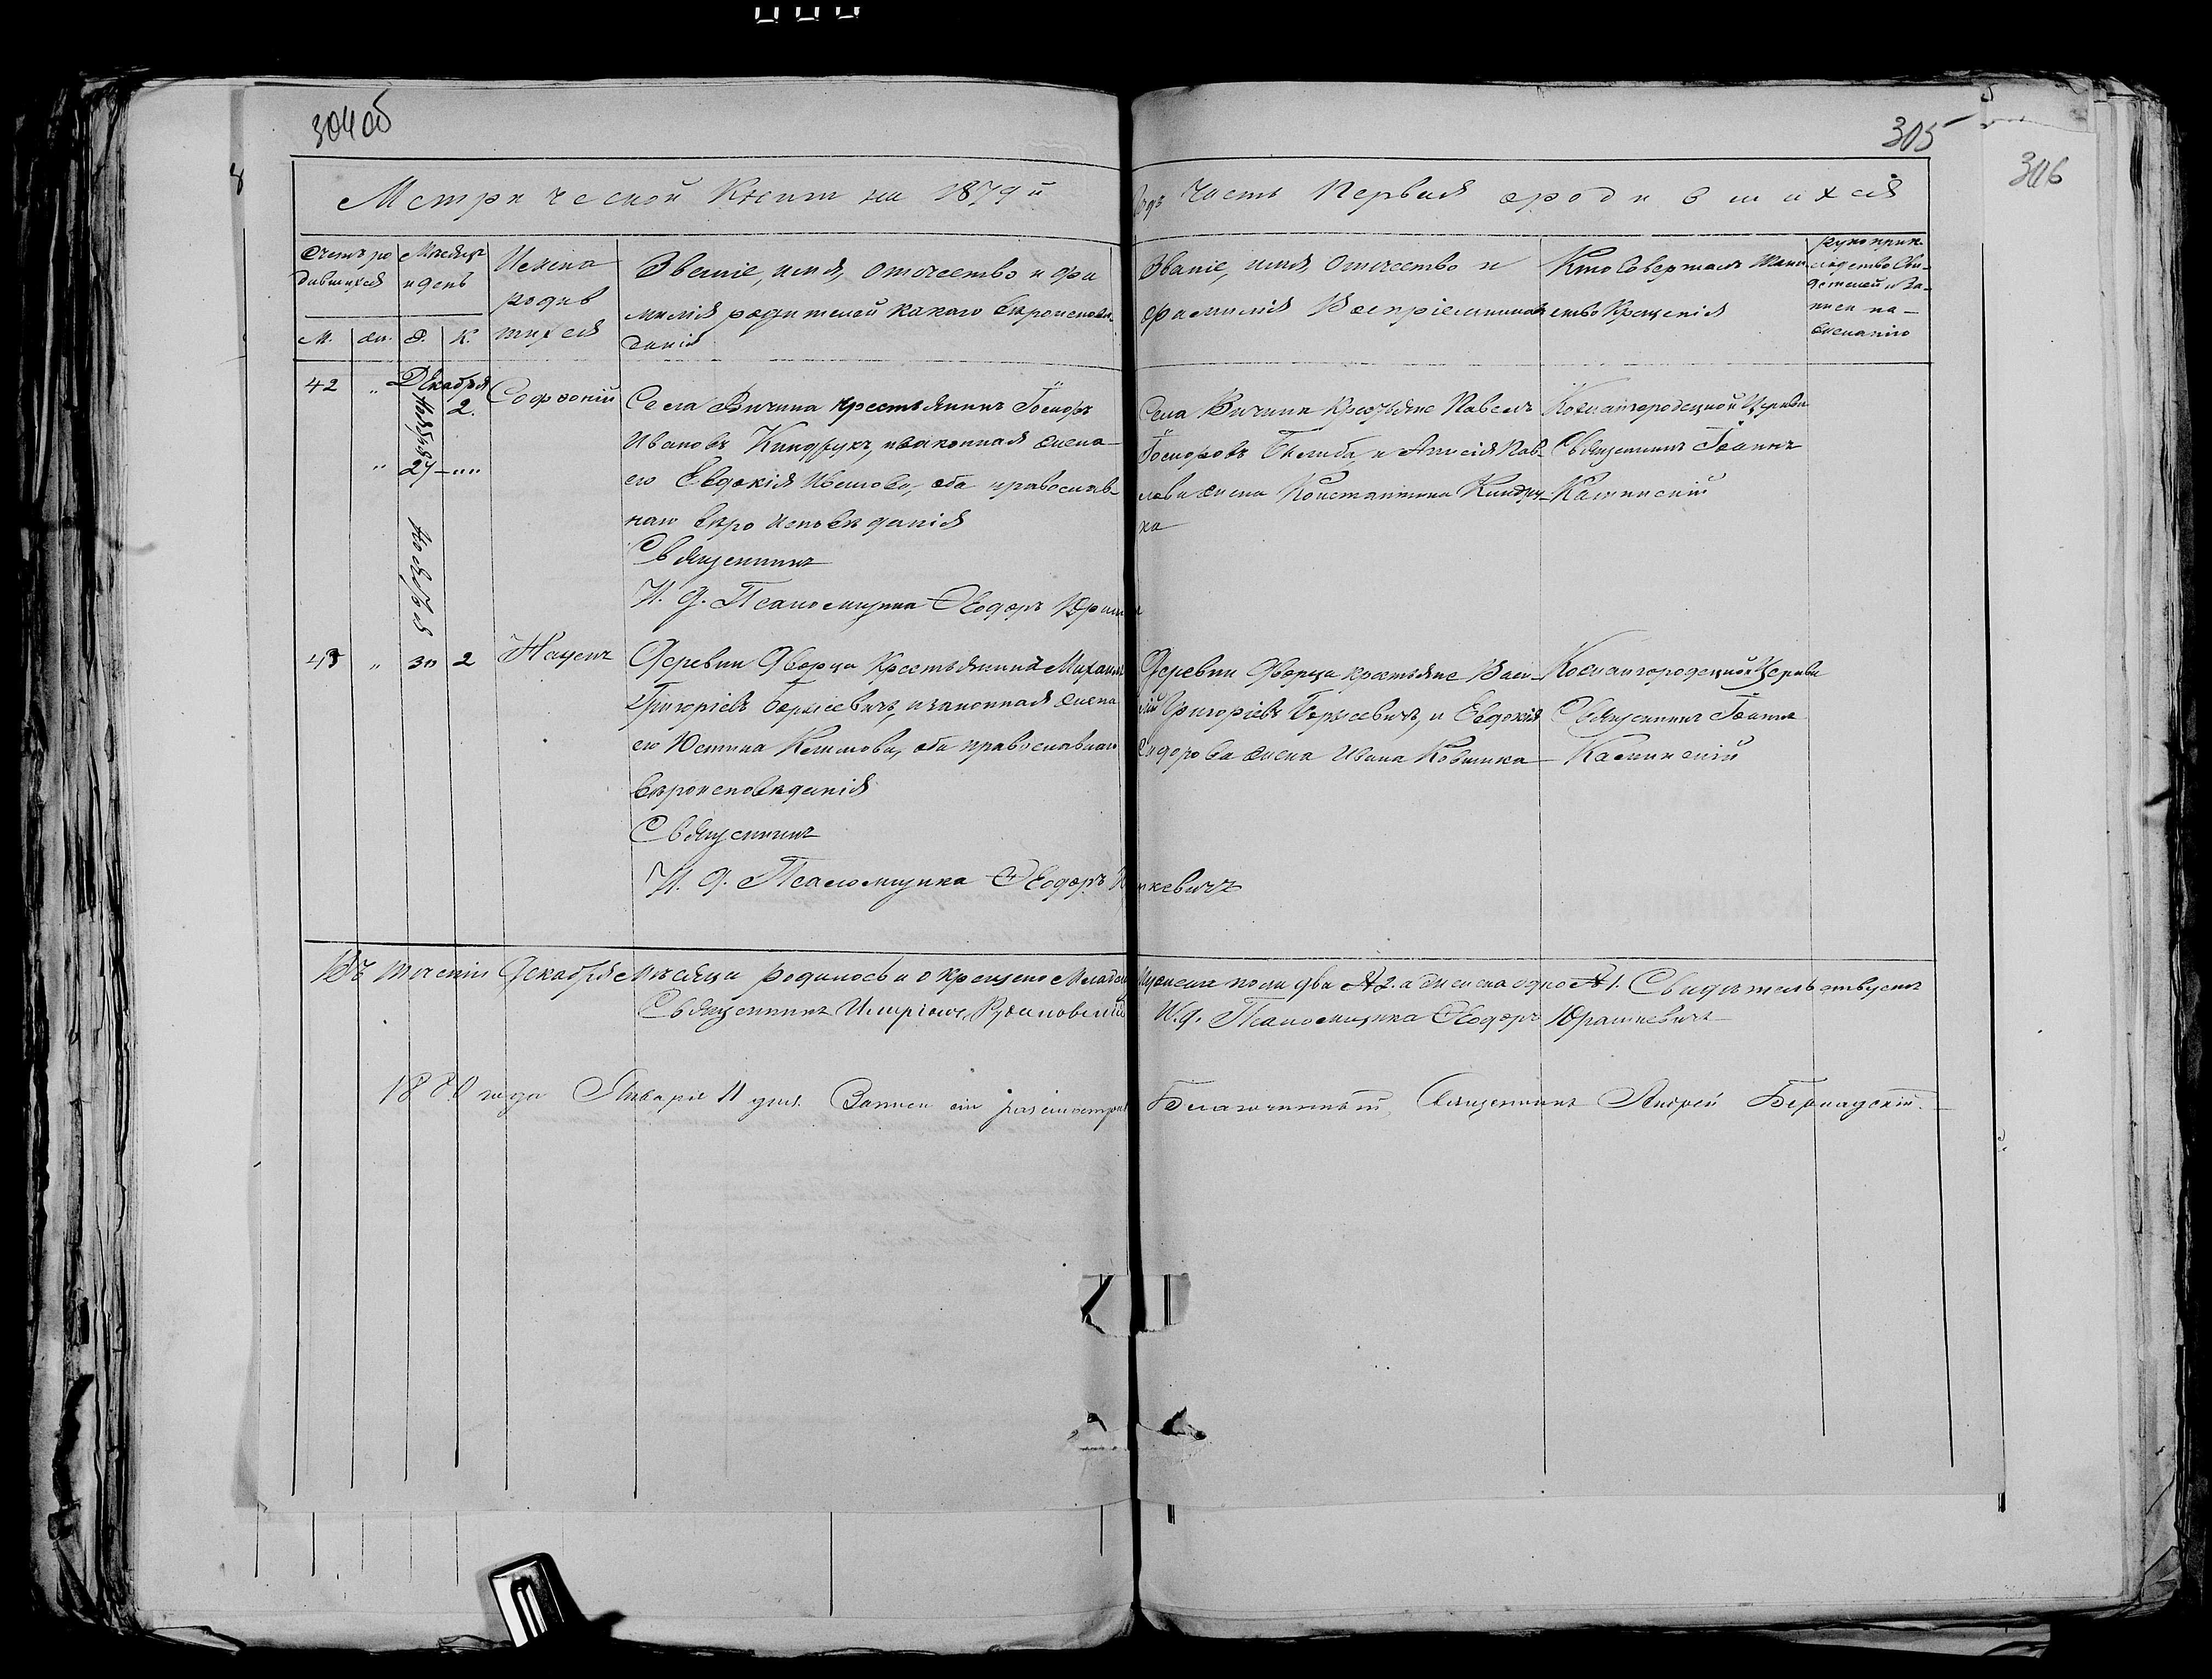 304 об
305
306
Метрической Книги на 1879 й
Годъ Часть Первая о родившихся
Счетъ ро
дившихся
М. Ж.
Месяцъ
и день
Р. К.
Имена
родив
шихся
Званіе, имя, отчество и фа
милія родителей какого вероиспове
данія
Званіе, имя, Отчество и
фамилія Воспріемников
Кто Совершалъ Таин
ство Крещенія
Рукоприк
ладство Сви-
детелей и за-
писи по-
желанію
42 " Декабря
Ноября 2.
" 27 - ""
Софоній
Села Вичина крестьянинъ Госифъ
Ивановъ Киндрукъ, и законная жена
его Евдокія Иванова, оба православ-
наго вероисповеданія
Священникъ
И. д. Псаломщика Феодоръ Юраш
Села Вичина Крестьяне Павелъ
Госифовъ и Анисія Пав-
лова жена Константина Киндру-
ка
Кожангородецкой Церкви
Священникъ Іоаннъ
Каминскій
Ноября
43 " 30 2
Деревни Дворца Крестьянинъ Михаилъ
Григоріевъ Борисевичъ, и законная жена
его Юстина, оба православнаго
вероисповеданія
Священникъ
И. д. Псаломщика Феодоръ Юрашкевичъ
Деревни Дворца крестьяне Васи-
лій Григоріевъ Борисевичъ, и Евдокія
Сидорова жена Ивана
Кожангородецкой Церкви
Священникъ Іоаннъ
Каминскій
Въ теченіи Декабря месяца родилось и окрещено Младен мужеска пола два № 2. а женска одно № 1. Свидетельствуемъ
Священникъ И. д. Псаломщика Феодоръ Юрашкевичъ
1880 года Января 11 дня. Записи сіи разсматривалъ Благочинный, Священникъ Андрей Бернадскій.